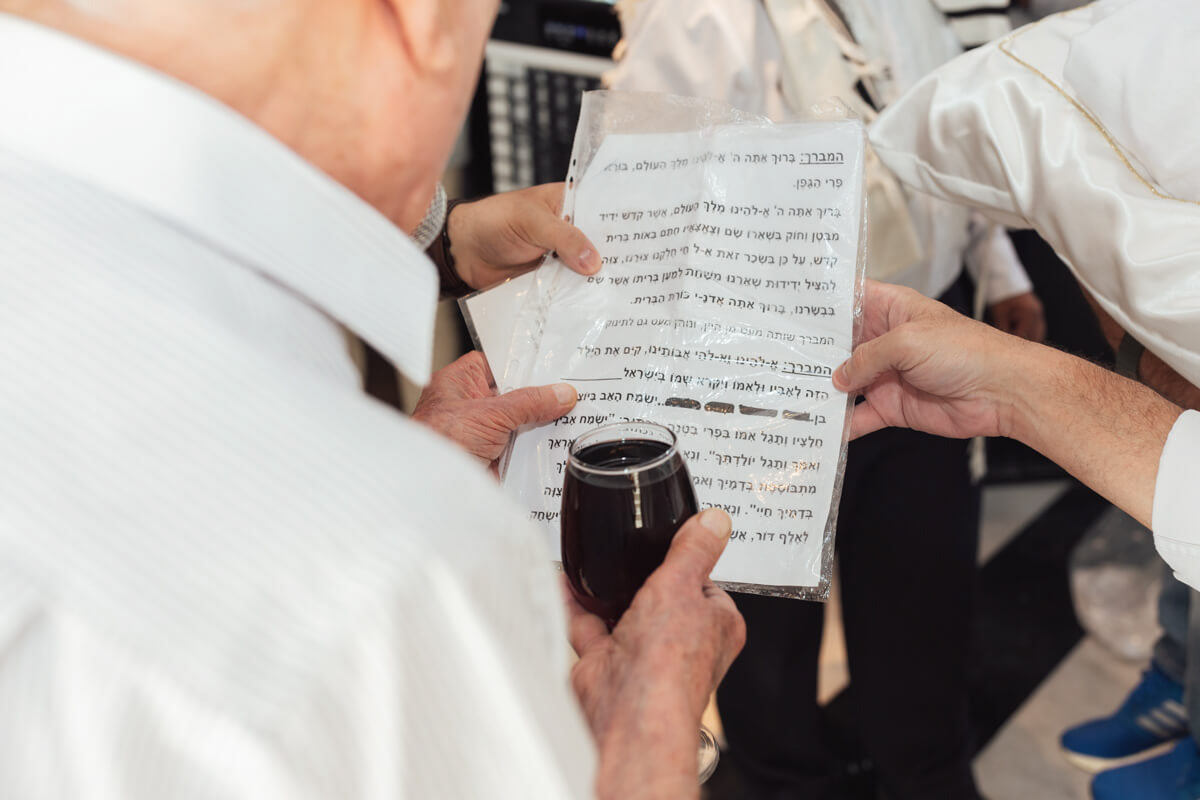 המברך: בָּרוּךְ אַתָּה ה' אֱ-לֹהֵינוּ מֶלֶךְ הָעוֹלָם, בּוֹרֵא
פְּרִי הַגָּפֶן.
בָּרוּךְ אַתָּה ה' אֱ-לֹהֵינוּ מֶלֶךְ הָעוֹלָם, אֲשֶׁר קִדֵּשׁ יְדִיד
מִבֶּטֶן וְחוֹק בִּשְׁאֵרוֹ שָׂם וְצֶאֱצָאָיו חָתַם בְּאוֹת בְּרִית
קֹדֶשׁ, עַל כֵּן בִּשְׂכַר זֹאת אֵ-ל חַי חֶלְקֵנוּ צוּרֵנוּ, צַוֵּה
לְהַצִּיל יְדִידוּת שְׁאֵרֵנוּ מִשַּׁחַת לְמַעַן בְּרִיתוֹ אֲשֶׁר שָׂם
בִּבְשָׂרֵנוּ, בָּרוּךְ אַתָּה אֲדֹנָ-י כּוֹרֵת הַבְּרִית.
המברך שותה מעט מן היין, ונותן מעט גם לתינוק
המברך: אֱ-לֹהֵינוּ וֵא-לֹהֵי אֲבוֹתֵינוּ, קַיֵּם אֶת הַיֶּלֶד
הַזֶּה לְאָבִיו וּלְאִמּוֹ וְיִקָּרֵא שְׁמוֹ בְּיִשְׂרָאֵל
בן ..יִשְׂמַח הָאָב בְּיוֹצֵא
חֲלָצָיו וְתָגֵל אִמּוֹ בִּפְרִי בִטְנָהּ "יִשְׂמַח אָבִיךָ
וְאִמֶּךָ וְתָגֵל יוֹלַדְתֶּךָ".
מִתְבּוֹסֶסֶת בְּדָמָיִךְ
בְּדָמַיִךְ חֲיִי". וְנֶאֱמַר: צִוָּה
לְאֶלֶף דּוֹר,